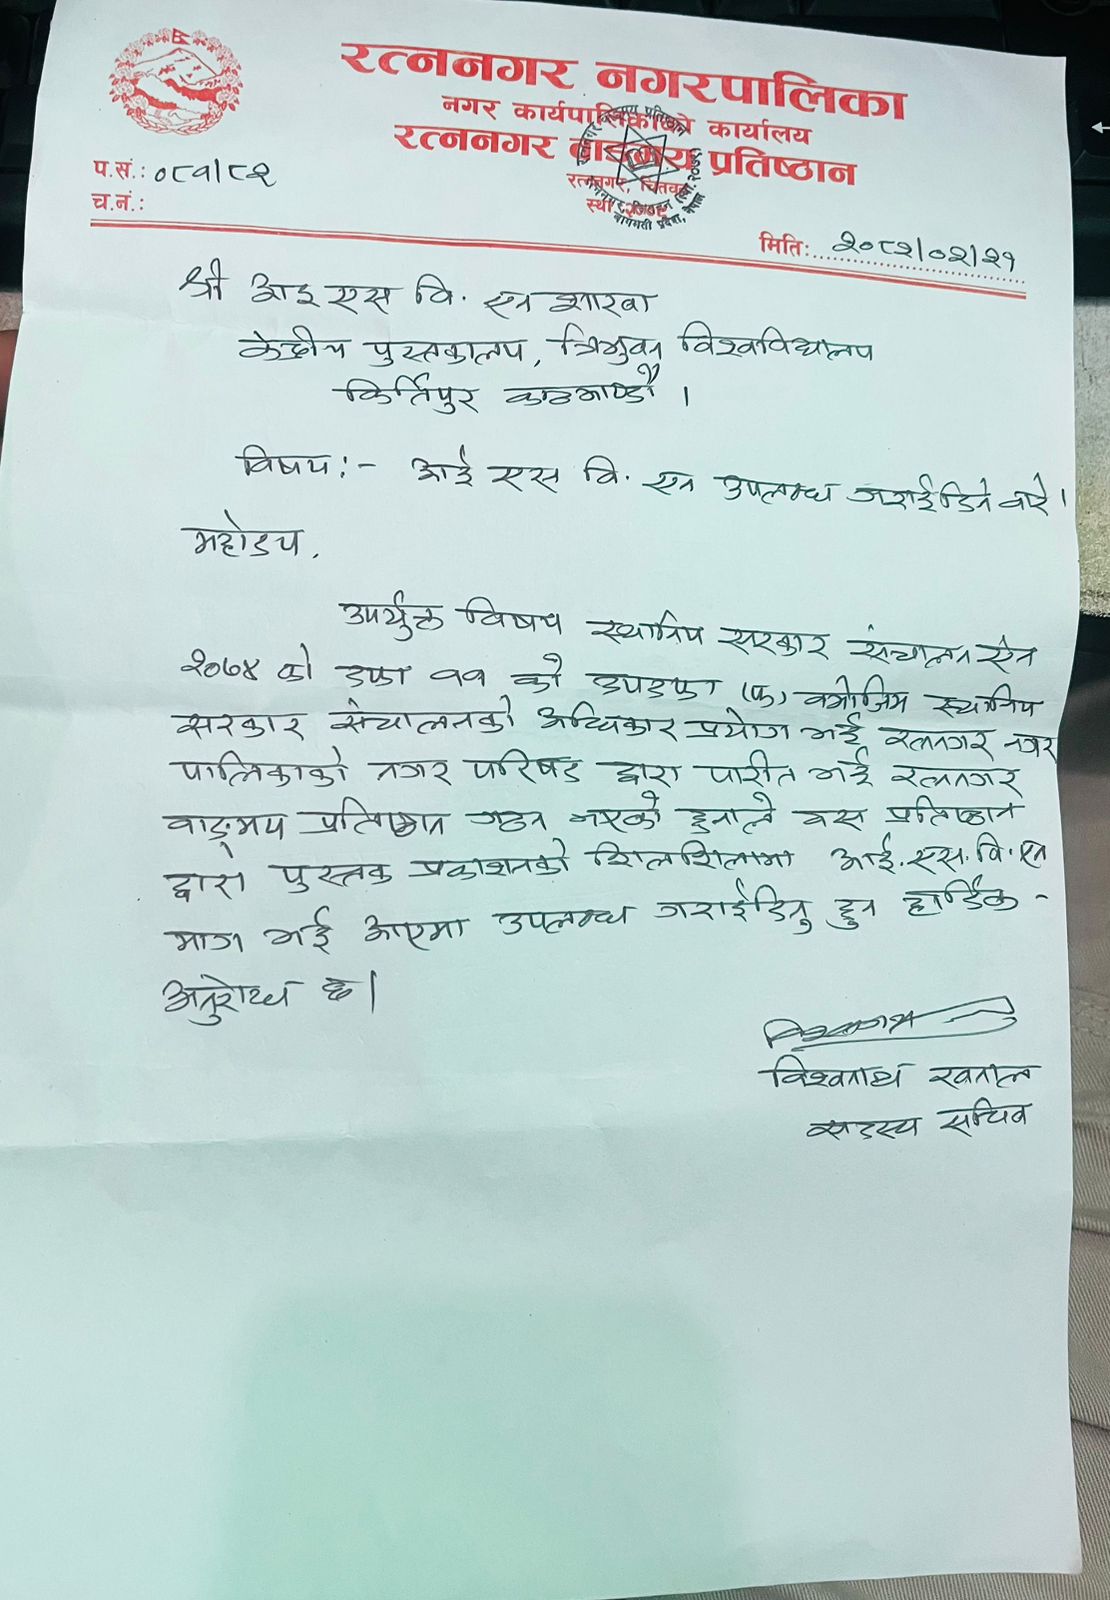 रत्ननगर नगरपालिका
नगर कार्यपालिकाको कार्यालय
रत्ननगर वाङ्मय प्रतिष्ठान
रत्ननगर, चितवन
प.सं.: ०८१/८२
च.नं.:
मिति: २०८२/०२/२१
श्री आइ एस वि. एन शाखा
केन्द्रीय पुस्तकालय, त्रिभुवन विश्वविद्यालय
किर्तिपुर काठमाण्डौ ।
विषय:- आई एस वि. एन उपलब्ध गराईदिने बारे।
महोदय,
उपर्युक्त विषय स्थानिय सरकार संचालन ऐन
२०७४ को दफा ११ को उपदफा (फ) बमोजिम स्थानिय
सरकार संचालनको अधिकार प्रयोग भई रत्ननगर नगर
पालिकाको नगर परिषद द्वारा पारीत भई रत्ननगर
वाङ्मय प्रतिष्ठान गठन भएको हुनाले यस प्रतिष्ठान
द्वारा पुस्तक प्रकाशनको शिलशिलामा आई.एस.वि.एन
माग भई आएमा उपलब्ध गराईदिनु हुन हार्दिक -
अनुरोध छ।
विश्वनाथ खनाल
सदस्य सचिव